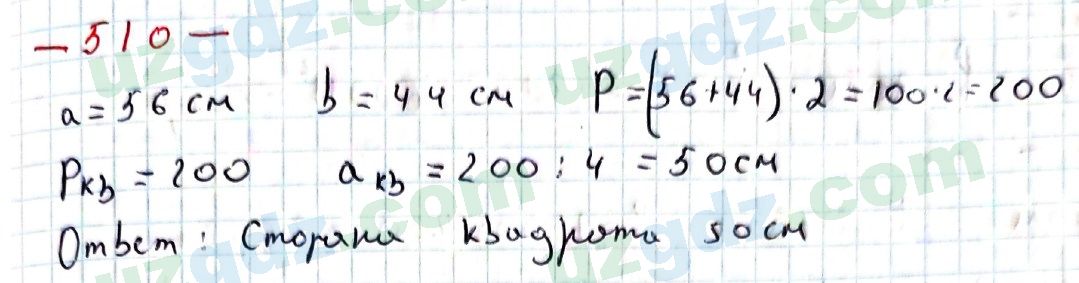 — 510 —
a = 56 см b = 44 см P = (56+44) · 2 = 100 · 2 = 200
Pкв = 200 aкв = 200 : 4 = 50 см
Ответ: Сторана квадрата 50 см
uzgdz.com uzgdz.com uzgdz.com
uzgdz.com uzgdz.com